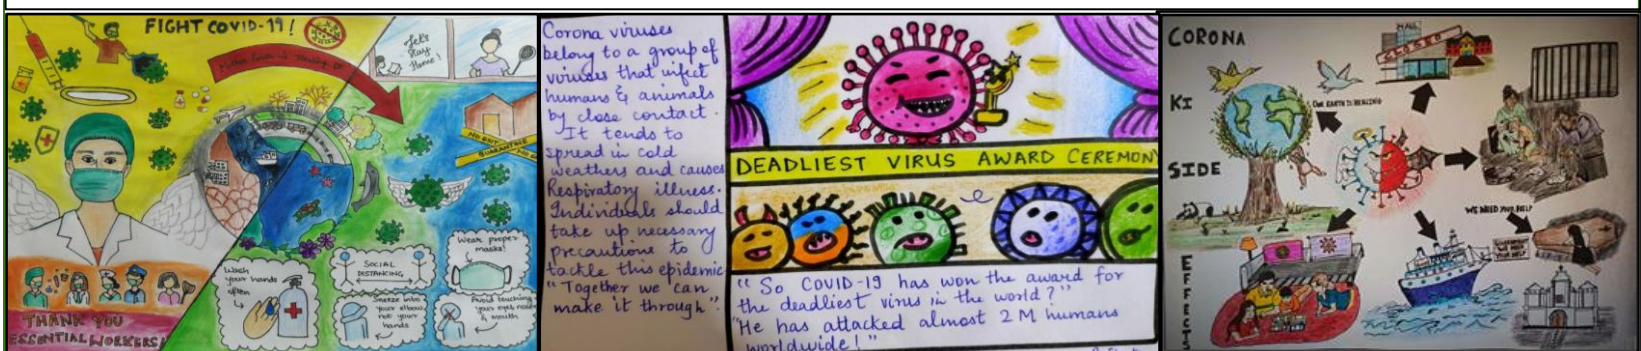 FIGHT COVID-19!
Let's
Stay
Home!
NO EXIT
QUARANTINE
Wear proper
masks!
SOCIAL
DISTANCING
Wash
your hands
often
Sneeze into
your elbow,
not your
hands
Avoid touching
your eyes, nose
& mouth
THANK YOU
ESSENTIAL WORKERS!
Corona viruses
belong to a group of
viruses that infect
humans & animals
by close contact.
It tends to
spread in cold
weathers and causes
Respiratory illness.
Individuals should
take up necessary
precautions to
tackle this epidemic
"Together we can
make it through".
DEADLIEST VIRUS AWARD CEREMONY
"So COVID-19 has won the award for
the deadliest virus in the world?"
"He has attacked almost 2 M humans
worldwide!"
CORONA
KI
SIDE
EFFECTS
MALL
CLOSED
OUR EARTH IS HEALING
WE NEED YOUR HELP